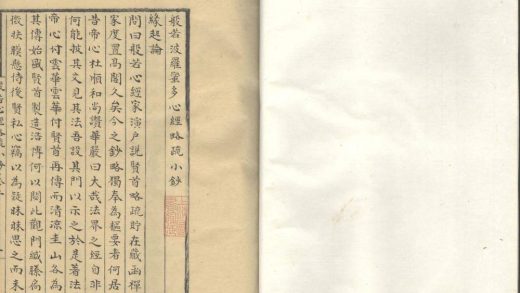 般若波羅蜜多心經略疏小鈔
緣起論
問曰般若心經家演戶說賢首略疏貯在藏函禪
家度置高閣久矣今之鈔略獨奉為樞要者何居
昔帝心杜順和尚讚華嚴曰大哉法界之經自非
何能披其文見其法吾設其門以示之於是著法
帝心付雲華雲華付賢首再傳而清涼圭山各為
其傳始盛賢首製造浩博何以閟此觀門緘縢扃
微扶賾懸待後賢私心竊以為疑昧昧思之而未